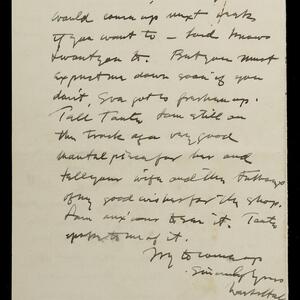 would come up next week
if you want to — Lord knows
I want you to. But you must
expect me down soon if you
don't, Eva got to freshen up.
Tell Tante I am still on
the track of a very good
mantel piece for her and
tell your wife and the
of my good wishes for the shop.
I am anxious to see it. Tante
spoke to me of it.
Try to come up
Sincerely yours